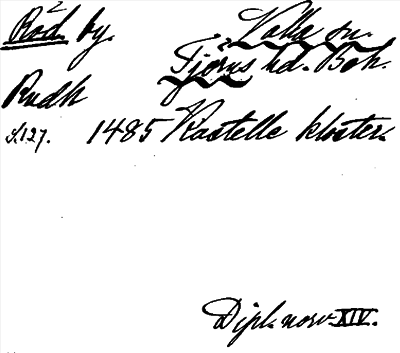 Röd by. Valla sn.
Tjörns hd. Boh.
Rudh
S.127. 1485 Kastelle kloster.
Dipl. norv. XIV.